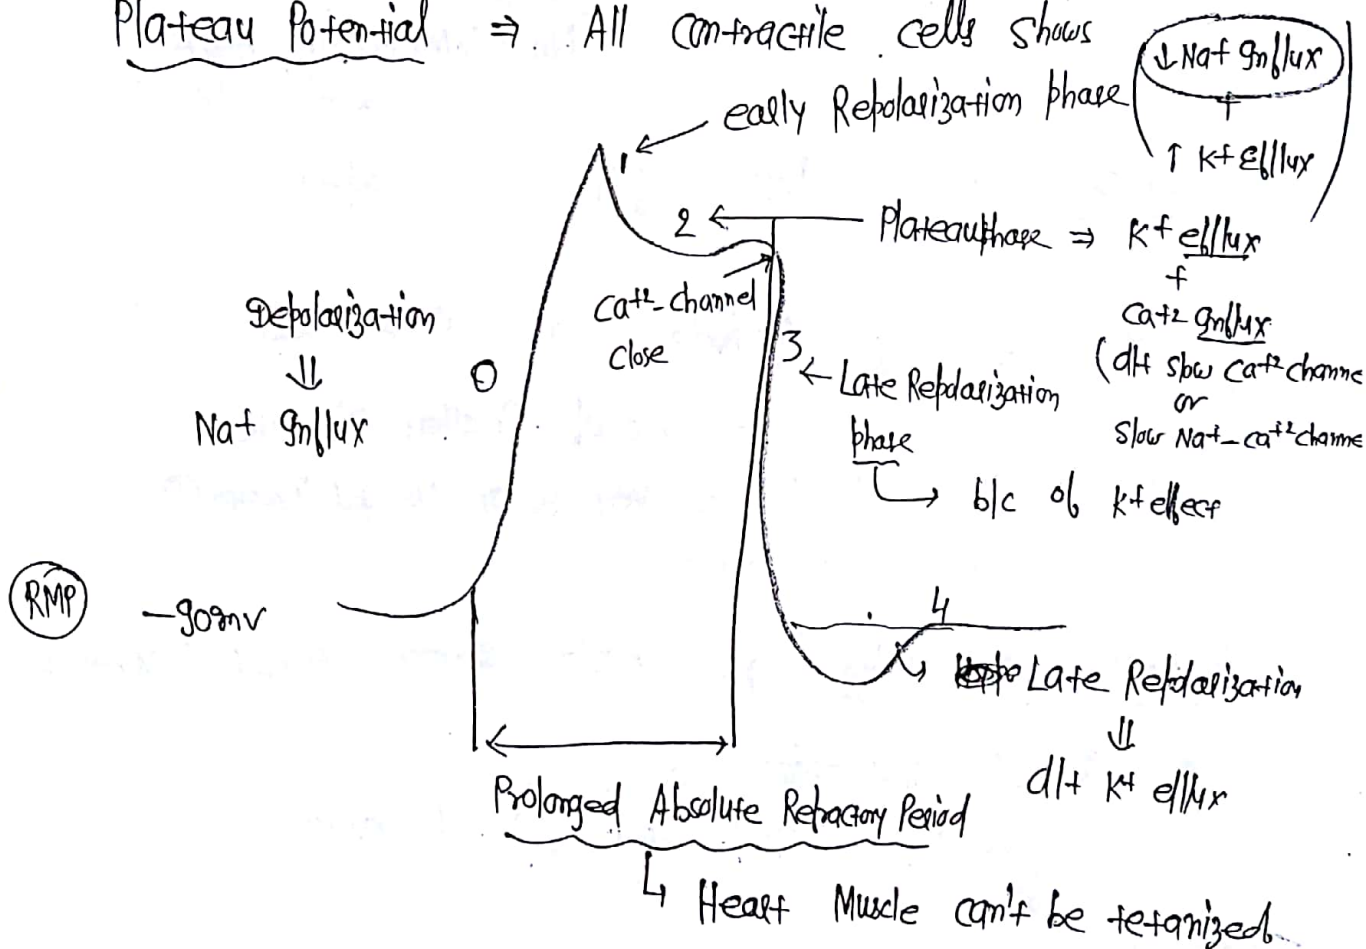 Plateau Potential ⇒ All contractile cells shows
early Repolarization phase
↓ Na+ Influx
+
↑ K+ Efflux
1
2
Plateau phase ⇒ K+ efflux
+
Ca+2 Influx
(dlt slow Ca+2 channe
or
Slow Na+-Ca+2 channe
Ca+2-channel
close
Depolarization
⇓
Na+ Influx
0
3
Late Repolarization
phase
b/c of K+ effect
RMP
-90mv
4
Late Repolarization
⇓
dlt K+ efflux
Prolonged Absolute Refractory Period
Heart Muscle can't be tetanized